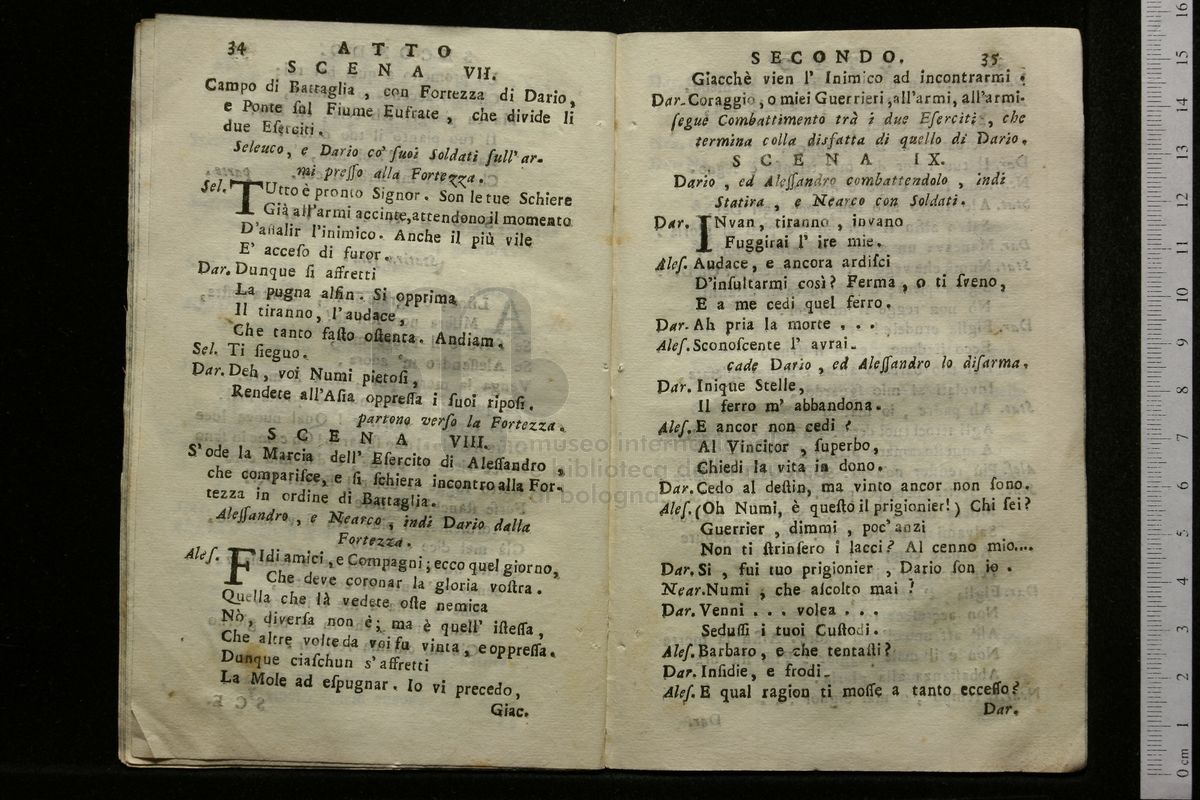 34 ATTO
SCENA VII.
Campo di Battaglia, con Fortezza di Dario,
e Ponte ſul Fiume Eufrate, che divide li
due Eſerciti.
Seleuco, e Dario co' ſuoi Soldati ſull' ar-
mi preſſo alla Fortezza.
Sel. TUtto è pronto Signor. Son le tue Schiere
Già all'armi accinte, attendono il momento
D'aſſalir l'inimico. Anche il più vile
E' acceſo di furor.
Dar. Dunque ſi affretti
La pugna alfin. Si opprima
Il tiranno, l'audace,
Che tanto faſto oſtenta. Andiam.
Sel. Ti ſieguo.
Dar. Deh, voi Numi pietoſi,
Rendete all'Aſia oppreſſa i ſuoi ripoſi.
partono verſo la Fortezza.
SCENA VIII.
S'ode la Marcia dell' Eſercito di Aleſſandro,
che compariſce, e ſi ſchiera incontro alla For-
tezza in ordine di Battaglia.
Aleſſandro, e Nearco, indi Dario dalla
Fortezza.
Aleſ. FIdi amici, e Compagni; ecco quel giorno,
Che deve coronar la gloria voſtra.
Quella che là vedete oſte nemica
Nò, diverſa non è; ma è quell' iſteſſa,
Che altre volte da voi fu vinta, e oppreſſa.
Dunque ciaſchun s'affretti
La Mole ad eſpugnar. Io vi precedo,
Giac.
SECONDO. 35
Giacchè vien l' Inimico ad incontrarmi.
Dar. Coraggio, o miei Guerrieri, all'armi, all'armi.
ſegue Combattimento trà i due Eſerciti, che
termina colla disfatta di quello di Dario.
SCENA IX.
Dario, ed Aleſſandro combattendolo, indi
Statira, e Nearco con Soldati.
Dar. INvan, tiranno, invano
Fuggirai l' ire mie.
Aleſ. Audace, e ancora ardiſci
D'inſultarmi così? Ferma, o ti ſveno,
E a me cedi quel ferro.
Dar. Ah pria la morte . . .
Aleſ. Sconoſcente l' avrai.
cade Dario, ed Aleſſandro lo diſarma.
Dar. Inique Stelle,
Il ferro m' abbandona.
Aleſ. E ancor non cedi?
Al Vincitor, ſuperbo,
Chiedi la vita in dono.
Dar. Cedo al deſtin, ma vinto ancor non ſono.
Aleſ. (Oh Numi, è queſto il prigionier!) Chi ſei?
Guerrier, dimmi, poc' anzi
Non ti ſtrinſero i lacci? Al cenno mio....
Dar. Si, fui tuo prigionier, Dario ſon io.
Near. Numi, che aſcolto mai?
Dar. Venni . . . volea . . .
Seduſſi i tuoi Cuſtodi.
Aleſ. Barbaro, e che tentaſti?
Dar. Inſidie, e frodi.
Aleſ. E qual ragion ti moſſe a tanto ecceſſo?
Dar.